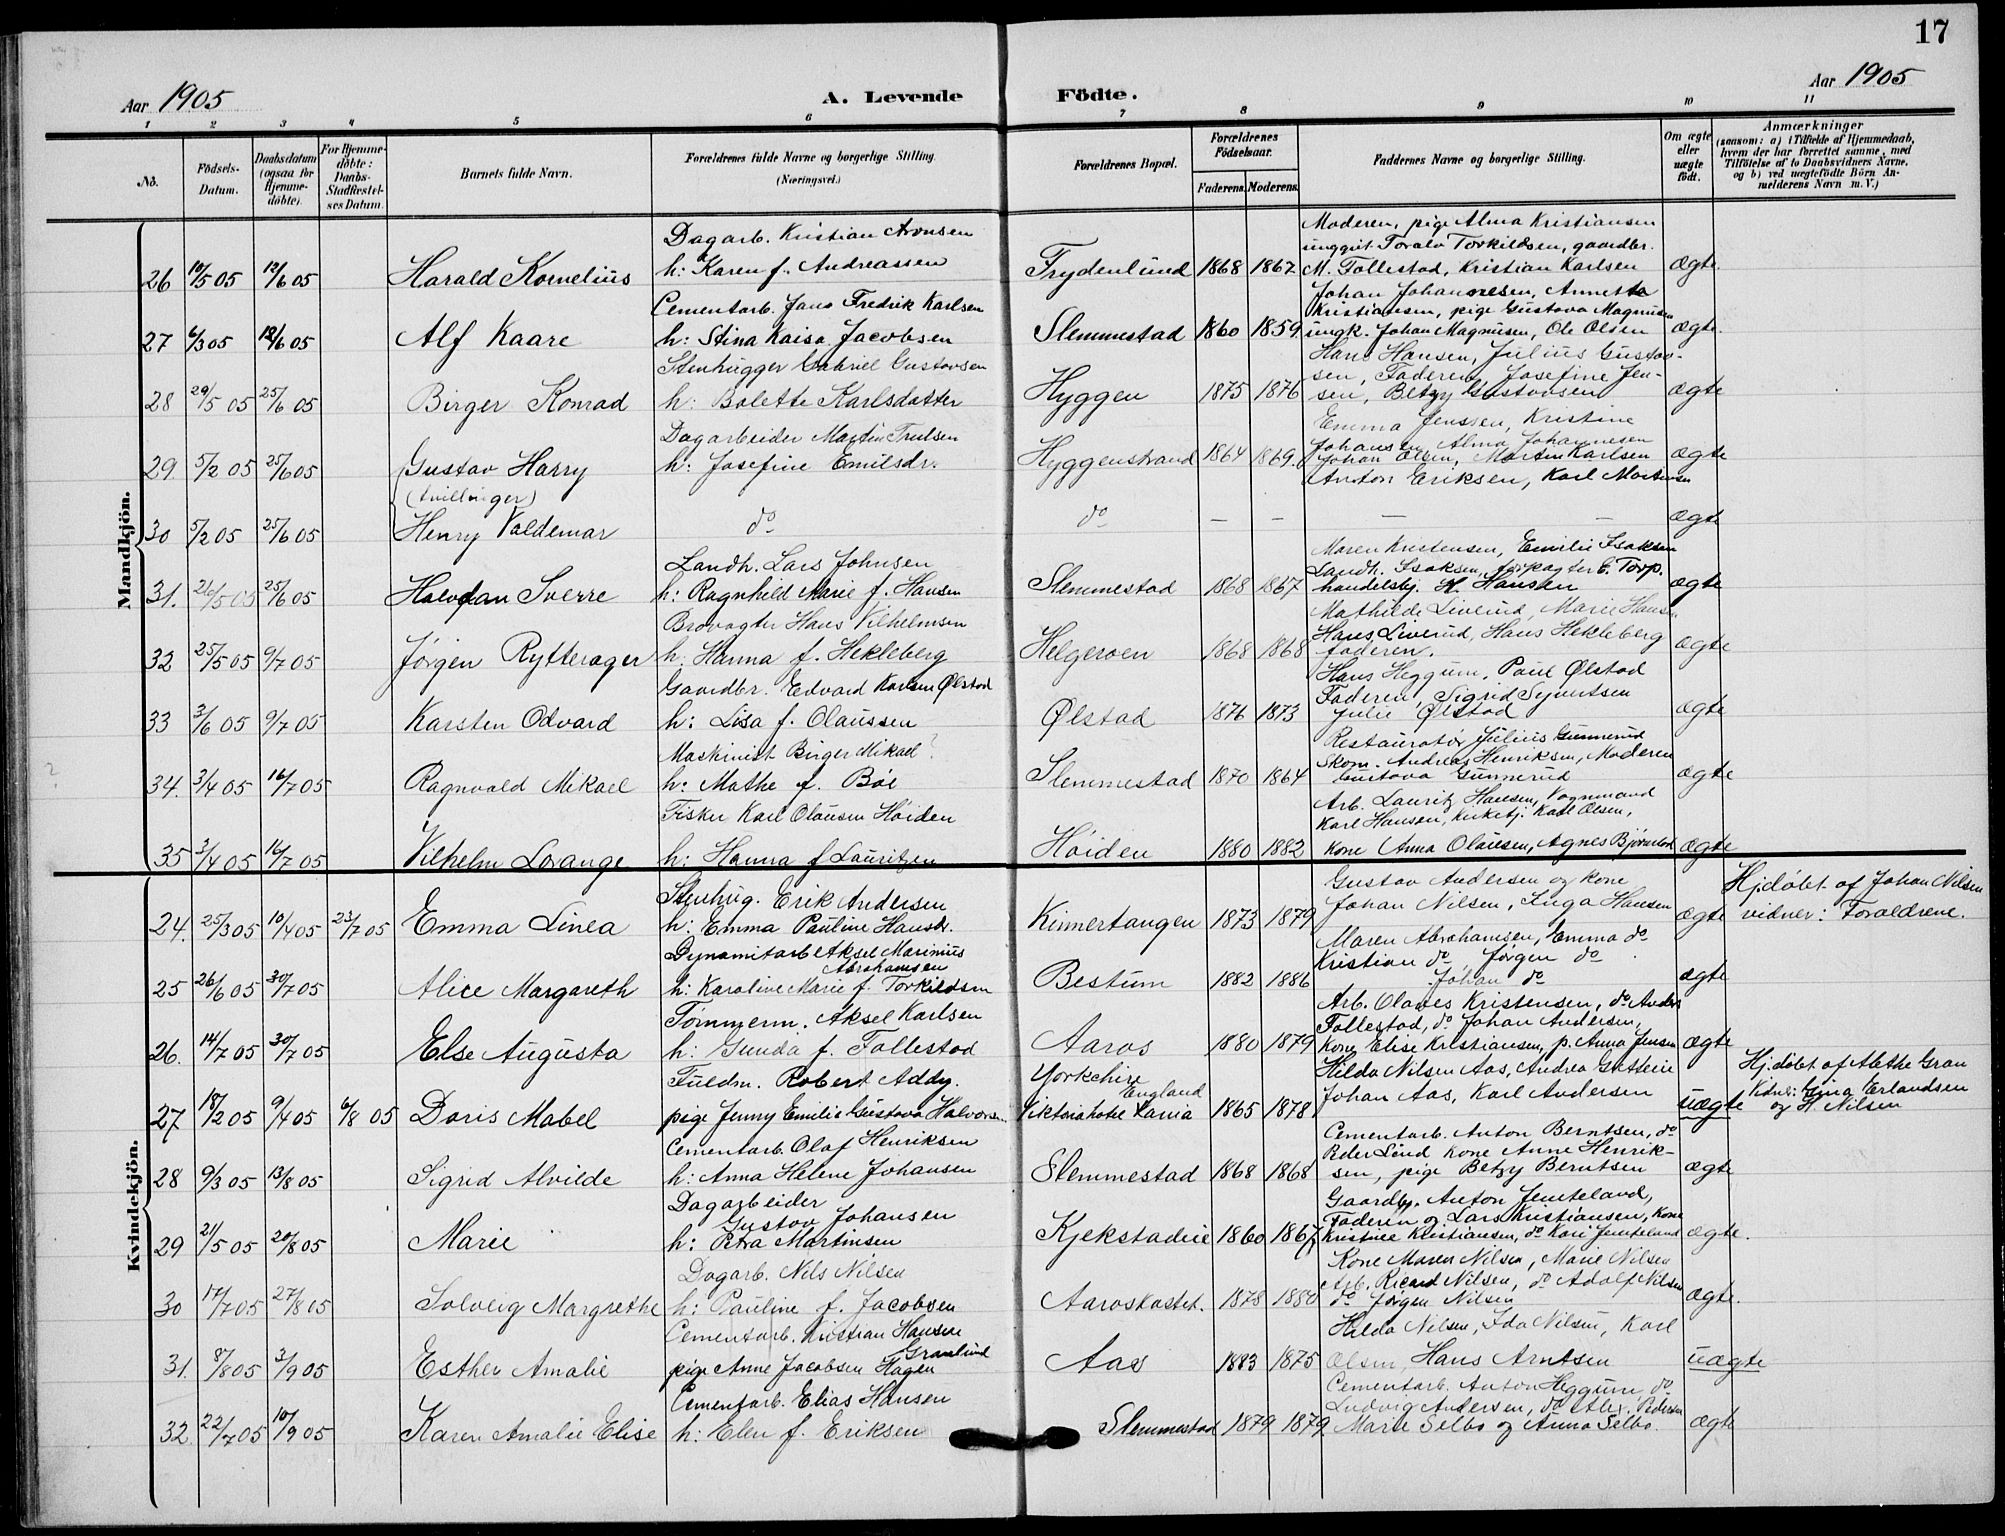 17
Aar 1905
A. Levende Födte.
Aar 1905
1 2 3 4 5 6 7 8 9 10 11
No.
Födsels-Datum.
Daabsdatum (ogsaa for Hjemme-döbte).
For Hjemme-döbte: Daabs-Stadfæstel-ses Datum.
Barnets fulde Navn.
Forældrenes fulde Navne og borgerlige Stilling. (Næringsvei.)
Forældrenes Bopæl.
Forældrenes Födselsaar.
Faderens. Moderens.
Faddernes Navne og borgerlige Stilling.
Om ægte eller uægte födt.
Anmærkninger
(saasom: a) i Tilfælde af Hjemmedaab, hvem der har forrettet samme, med Tilföielse af to Daabsvidners Navne, og b) ved uægtefödte Börn An-melderens Navn m. V.)
Mandkjön.
Dagarb. Kristian Aronsen
Moderen, pige Alma Kristiansen
unggut Toralv Torkildsen, gaardbr.
26 10/5 05 12/6 05 Harald Kornelius h: Karen f. Andreassen Frydenlund 1868 1867 M. Follestad, Kristian Karlsen ægte.
Cementarb. Jans Fredrik Karlsen
Johan Johannesen, Annette
Kristiansen, pige Gustava Magnusen
27 6/3 05 12/6 05 Alf Kaare h: Stina Kaisa Jacobsen Slemmestad 1860 1859 ungk. Johan Magnusen, Ole Olsen ægte.
Stenhugger Gabriel Gustavsen
Hans Hansen, Julius Gustav-
sen, Faderen, Josefine Jen-
28 29/5 05 25/6 05 Birger Konrad h: Bolette Karlsdatter Hyggen 1875 1876 sen, Betzy Gustavsen ægte
Dagarbeider Martin Trulsen
Emma Jensen, Kristine
Johansen, Alma Johannesen
29. 5/2 05 25/6 05 Gustav Harry h: Josefine Emilsdr. Hyggenstrand 1864 1869. Johan Olsen, Martin Karlsen ægte
(tvillinger) Anton Eriksen, Karl Mortensen
30 5/2 05 25/6 05 Henry Valdemar do do — — — — ægte
Landh. Lars Johnsen
Maren Kristensen, Emilie Isaksen
Landh. Isaksen, forpagter C. Torp.
31. 26/5 05 25/6 05 Halvdan Sverre h: Ragnhild Marie f. Hansen Slemmestad 1868 1867 handelsbj. H. Hansen ægte
Brovagter Hans Vilhelmsen
Mathilde Liverud, Marie Hansen
32 25/5 05 9/7 05 Jørgen Rytterager h. Hanna f. Hekleberg Helgeroen 1868 1868 Hans Liverud, Hans Hekleberg ægte
faderen.
Gaardbr. Edvard Karlsen Ølstad
Hans Heggum, Paul Ølstad
Faderen, Sigrid
33 3/6 05 9/7 05 Karsten Odvard h: Lisa f. Olaussen Ølstad 1876 1873 Julie Ølstad ægte
Maskinist Birger Mikael ?
Restauratør Julius Gunnerud
Skom. Andreas Henriksen, Moderen
34. 3/4 05 16/7 05 Ragnvald Mikael h: Mathe f. Bøe Slemmestad 1870 1864 Gustava Gunnerud ægte
Fisker Karl Olausen Høiden
Arb. Lauritz Hansen, Vognmand
Karl Hansen, kirketj. Karl Olsen,
35 3/4 05 16/7 05 Vilhelm Lorange h: Hanna f Lauritzen Høiden 1880 1882 Kone Anna Olausen, Agnes Bjørnstad ægte
Kvindekjön.
Stenhug. Erik Andersen
Gustav Andersen og kone
Hj.døbt af Johan Nilsen
24. 25/3 05 10/4 05 23/7 05 Emma Linea h: Emma Pauline Hansdr. Kinnertangen 1873 1879 Johan Nilsen, Inga Hansen ægte vidner: Forældrene.
Dynamitarb Aksel Marinius
Abrahamsen
Maren Abrahamsen, Emma do
Kristian do, Jørgen do
25 26/6 05 30/7 05 Alice Margareth h: Karoline Marie f. Torkildsen Bestum 1882 1886 Johan do ægte
Tømmerm. Aksel Karlsen
Arb. Olaves Kristensen, do Anders
Follestad, do Johan Andersen,
26. 14/7 05 30/7 05 Else Augusta h: Gunda f. Follestad Aaros 1880 1879 Kone Elise Kristiansen, p. Anna Jensen ægte
Fuldm. Robert Addy.
Yorkchire England
Hilda Nilsen Aas, Andrea
Hj.døbt af Mathe Gran
27 18/2 05 9/4 05 6/8 05 Doris Mabel pige Jenny Emilie Gustava Halvorsen Viktoriahotel Xania 1865 1878 Johan Aas, Karl Andersen uægte Vidner: Gina Erlandsen
og H Nilsen
Cementarb. Olaf Henriksen
Cementarb. Anton Berntsen, do
Peder Lind Kone Anne Henrik-
28 9/3 05 13/8 05 Sigrid Alvilde h: Anna Helene Johansen Slemmestad 1868 1868 sen, pige Betzy Berntsen ægte
Dagarbeider
Gustav Johansen
Gaardbr. Anton Jemteland,
Faderen og Lars Kristiansen, Kone
29 21/5 05 20/8 05 Marie h: Petra Martinsen Kjekstadeie 1860 1867 Kristine Kristiansen, do Kari Jemteland ægte.
Dagarb. Nils Nilsen
Kone Maren Nilsen, Marie Nilsen
Arb. Ricard Nilsen, do Adolf Nilsen
30 17/7 05 27/8 05 Solveig Margrethe h: Pauline f. Jacobsen Aaroskastet. 1878 1880 do Jørgen Nilsen ægte.
Cementarb. Kristian Hansen
Granlund
Hilda Nilsen, Ida Nilsen, Karl
31. 8/8 05 3/9 05 Esther Amalie pige Anne Jacobsen Hagen Aas 1883 1875 Olsen, Hans Arntsen uægte
Cementarb. Elias Hansen
Cementarb. Anton Heggum, do
Ludvig Andersen, do Alex. Pedersen
32 22/7 05 10/9 05 Karen Amalie Elise h: Elen f. Eriksen Slemmestad 1879 1879 Marie Selbo og Anna Selbo. ægte